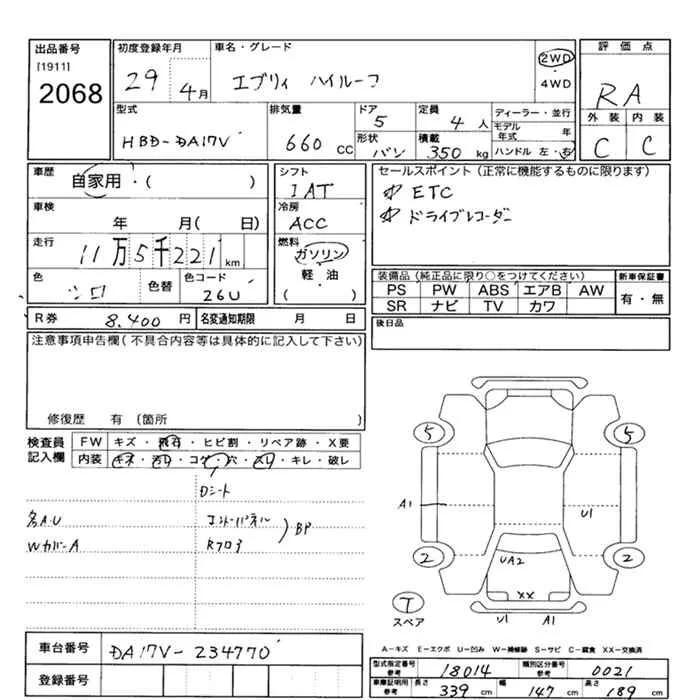 出品番号
[1911]
2068
初度登録年月
29 4月
車名・グレード
エブリィ ハイルーフ
2WD
4WD
評価点
RA
外装 内装
C C
型式
HBD-DA17V
排気量
660 CC
ドア
5
形状
バン
定員
4 人
積載
350 kg
ディーラー・並行
モデル年式 年
ハンドル 左・右
車歴
自家用・( )
車検
年 月( 日)
走行
11万5千221 km
色
シロ
色替
色コード
26U
シフト
IAT
冷房
ACC
燃料
ガソリン
軽・油
( )
セールスポイント(正常に機能するものに限ります)
ETC
ドライブレコーダー
装備品(純正品に限り○をつけてください)
PS PW ABS エアB AW
SR ナビ TV カワ
新車保証書
有・無
R券 8.400 円
名変通知期限 月 日
後日品
注意事項申告欄(不具合内容等は具体的に記入して下さい)
修復歴 有 (箇所 )
検査員
記入欄
FW キズ・飛石・ヒビ割・リペア跡・X要
内装 キズ・汚れ・コゲ・穴・スレ・キレ・破レ
Dシート
各A.U
WカバーA
BP
5 5
A1 U1
2 2
UA2
XX
T
スペア
U1 A1
A-キズ E-エクボ U-凹み W-補修跡 S-サビ C-腐食 XX-交換済
車台番号 DA17V-234770
登録番号
型式指定番号
参考
18014
類別区分番号
参考
0021
車庫証明用
参考
長さ 339 cm
幅 147 cm
高さ 189 cm